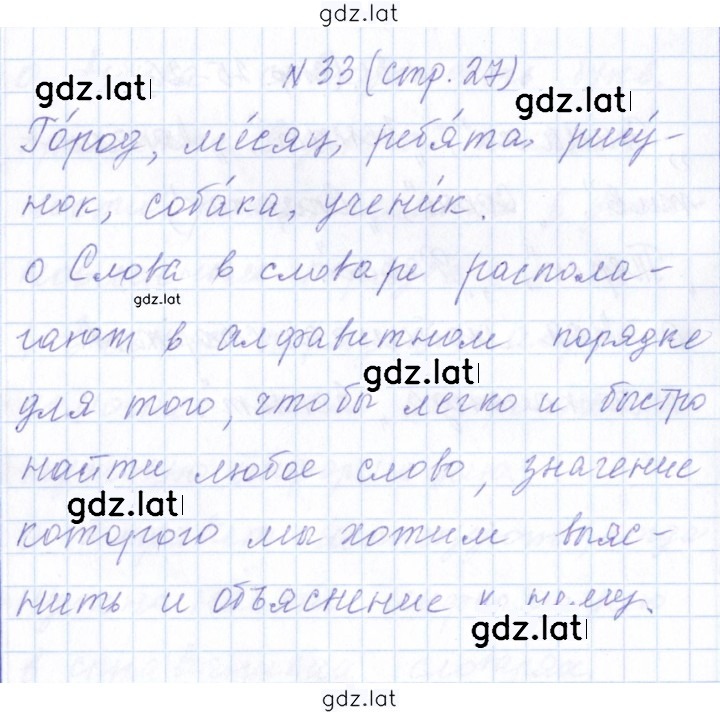 gdz.lat
№ 33 (стр. 27)
gdz.lat
gdz.lat
Го́род, ме́сяц, ребя́та, рису́-
нок, соба́ка, учени́к.
о Слова в словаре распола-
gdz.lat
гают в алфавитном порядке
gdz.lat
для того, чтобы легко и быстро
найти любое слово, значение
gdz.lat
которого мы хотим выяс-
нить и объяснение к нему.
gdz.lat
gdz.lat